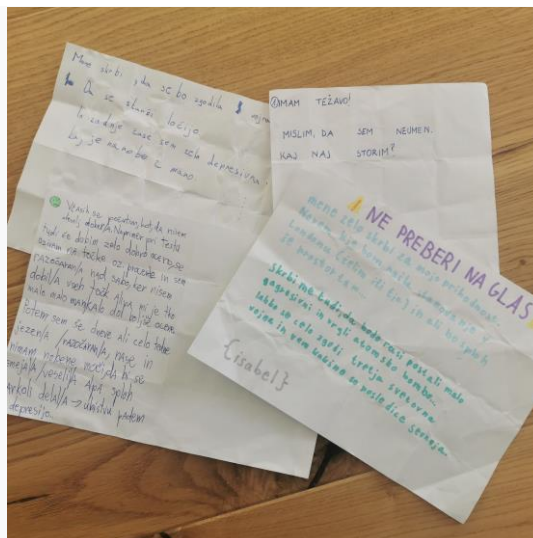 Mam skrbi, da se bo zgodila
Da se starši ločijo
In zadnje čase sem zelo depresivna
kaj je narobe z mano
MAM TEŽAVO!
MISLIM, DA SEM NEUMEN.
KAJ NAJ STORIM?
Včasih se počutim, kot da nisem
dovolj dober/a. Naprimer pri testu
Tudi če dobim zelo dobro oceno, se
oz prazne in sem
razočaran/a nad sabo, ker nisem
dobil/a vseh točk Ali pa mi je tko
malo malo mankalo do boljše ocene.
Potem sem še dneve ali celo tedne
jezen/a /razočaran/a nase in
nimam nobene moči, da bi se
smejal/a /veselil/a
karkoli delal/a → v
depresijo.
NE PREBERI NA GLAS
mene zelo skrbi za mojo prihodnost
Skrbi me tudi, da bodo rusi postali malo
agresivni in vrgli atomsko bombo.
lahko se celo zgodi tretja svetovna
vojna in vem kakšne so posledice sevanja
{isabel}